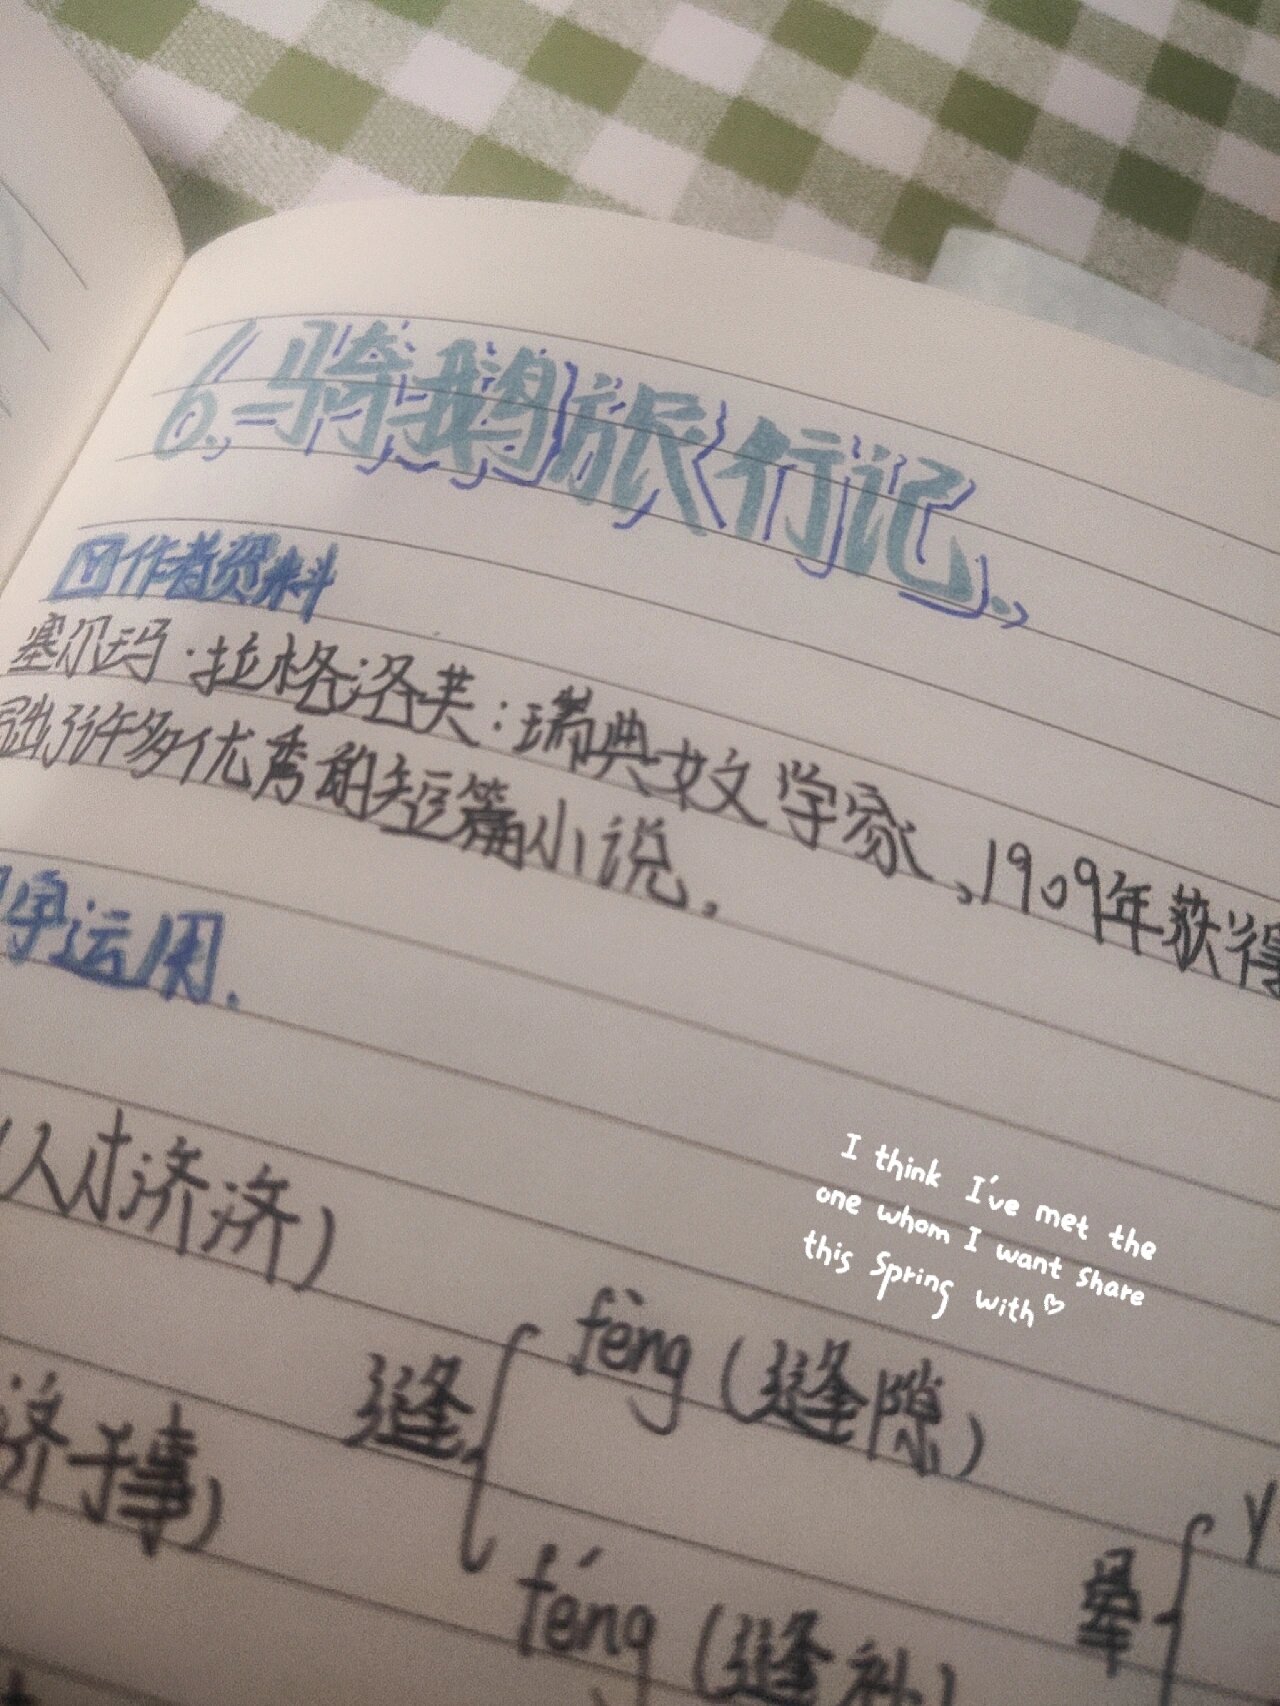 6.骑鹅旅行记.
作者资料
塞尔玛·拉格洛芙:瑞典女文学家,1909年获得
出了许多优秀的短篇小说.
运用.
人才济济)
I think I've met the
one whom I want share
this Spring with
缝 fèng (缝隙)
济于事)
féng (缝补)
晕 y